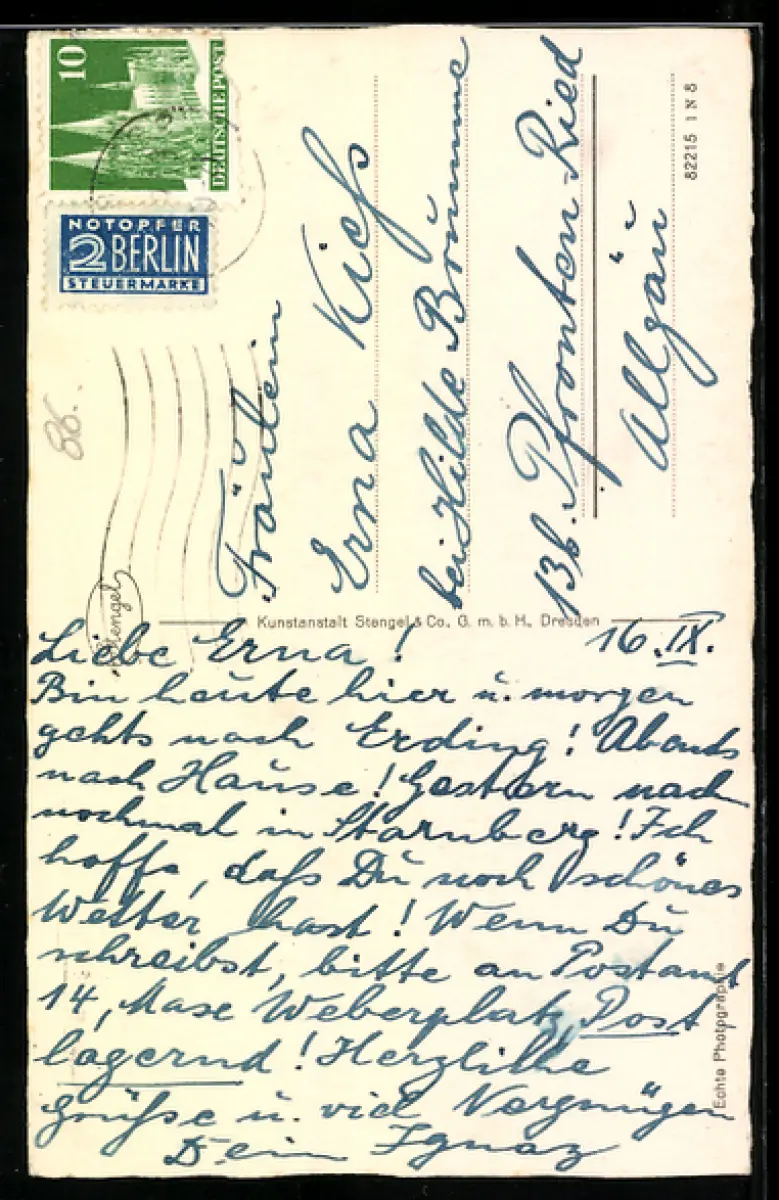 10
DEUTSCHE POST
NOTOPFER
2 BERLIN
STEUERMARKE
86.
Fräulein
Erna Kieß
bei Hilde Brumme
13b. Pfronten-Ried
Allgäu
82215 1 N 8
Stengel
Kunstanstalt Stengel & Co., G. m. b. H., Dresden
Liebe Erna! 16.IX.
Bin heute hier u. morgen
gehts nach Erding! Abends
nach Hause! Gestern nach
nochmal in Starnberg! Ich
hoffe, daß Du noch schönes
Wetter hast! Wenn Du
schreibst, bitte an Postamt
14, Weberplatz Post
lagernd! Herzliche
Grüße u. viel Vergnügen
Dein Ignaz
Echte Photographie